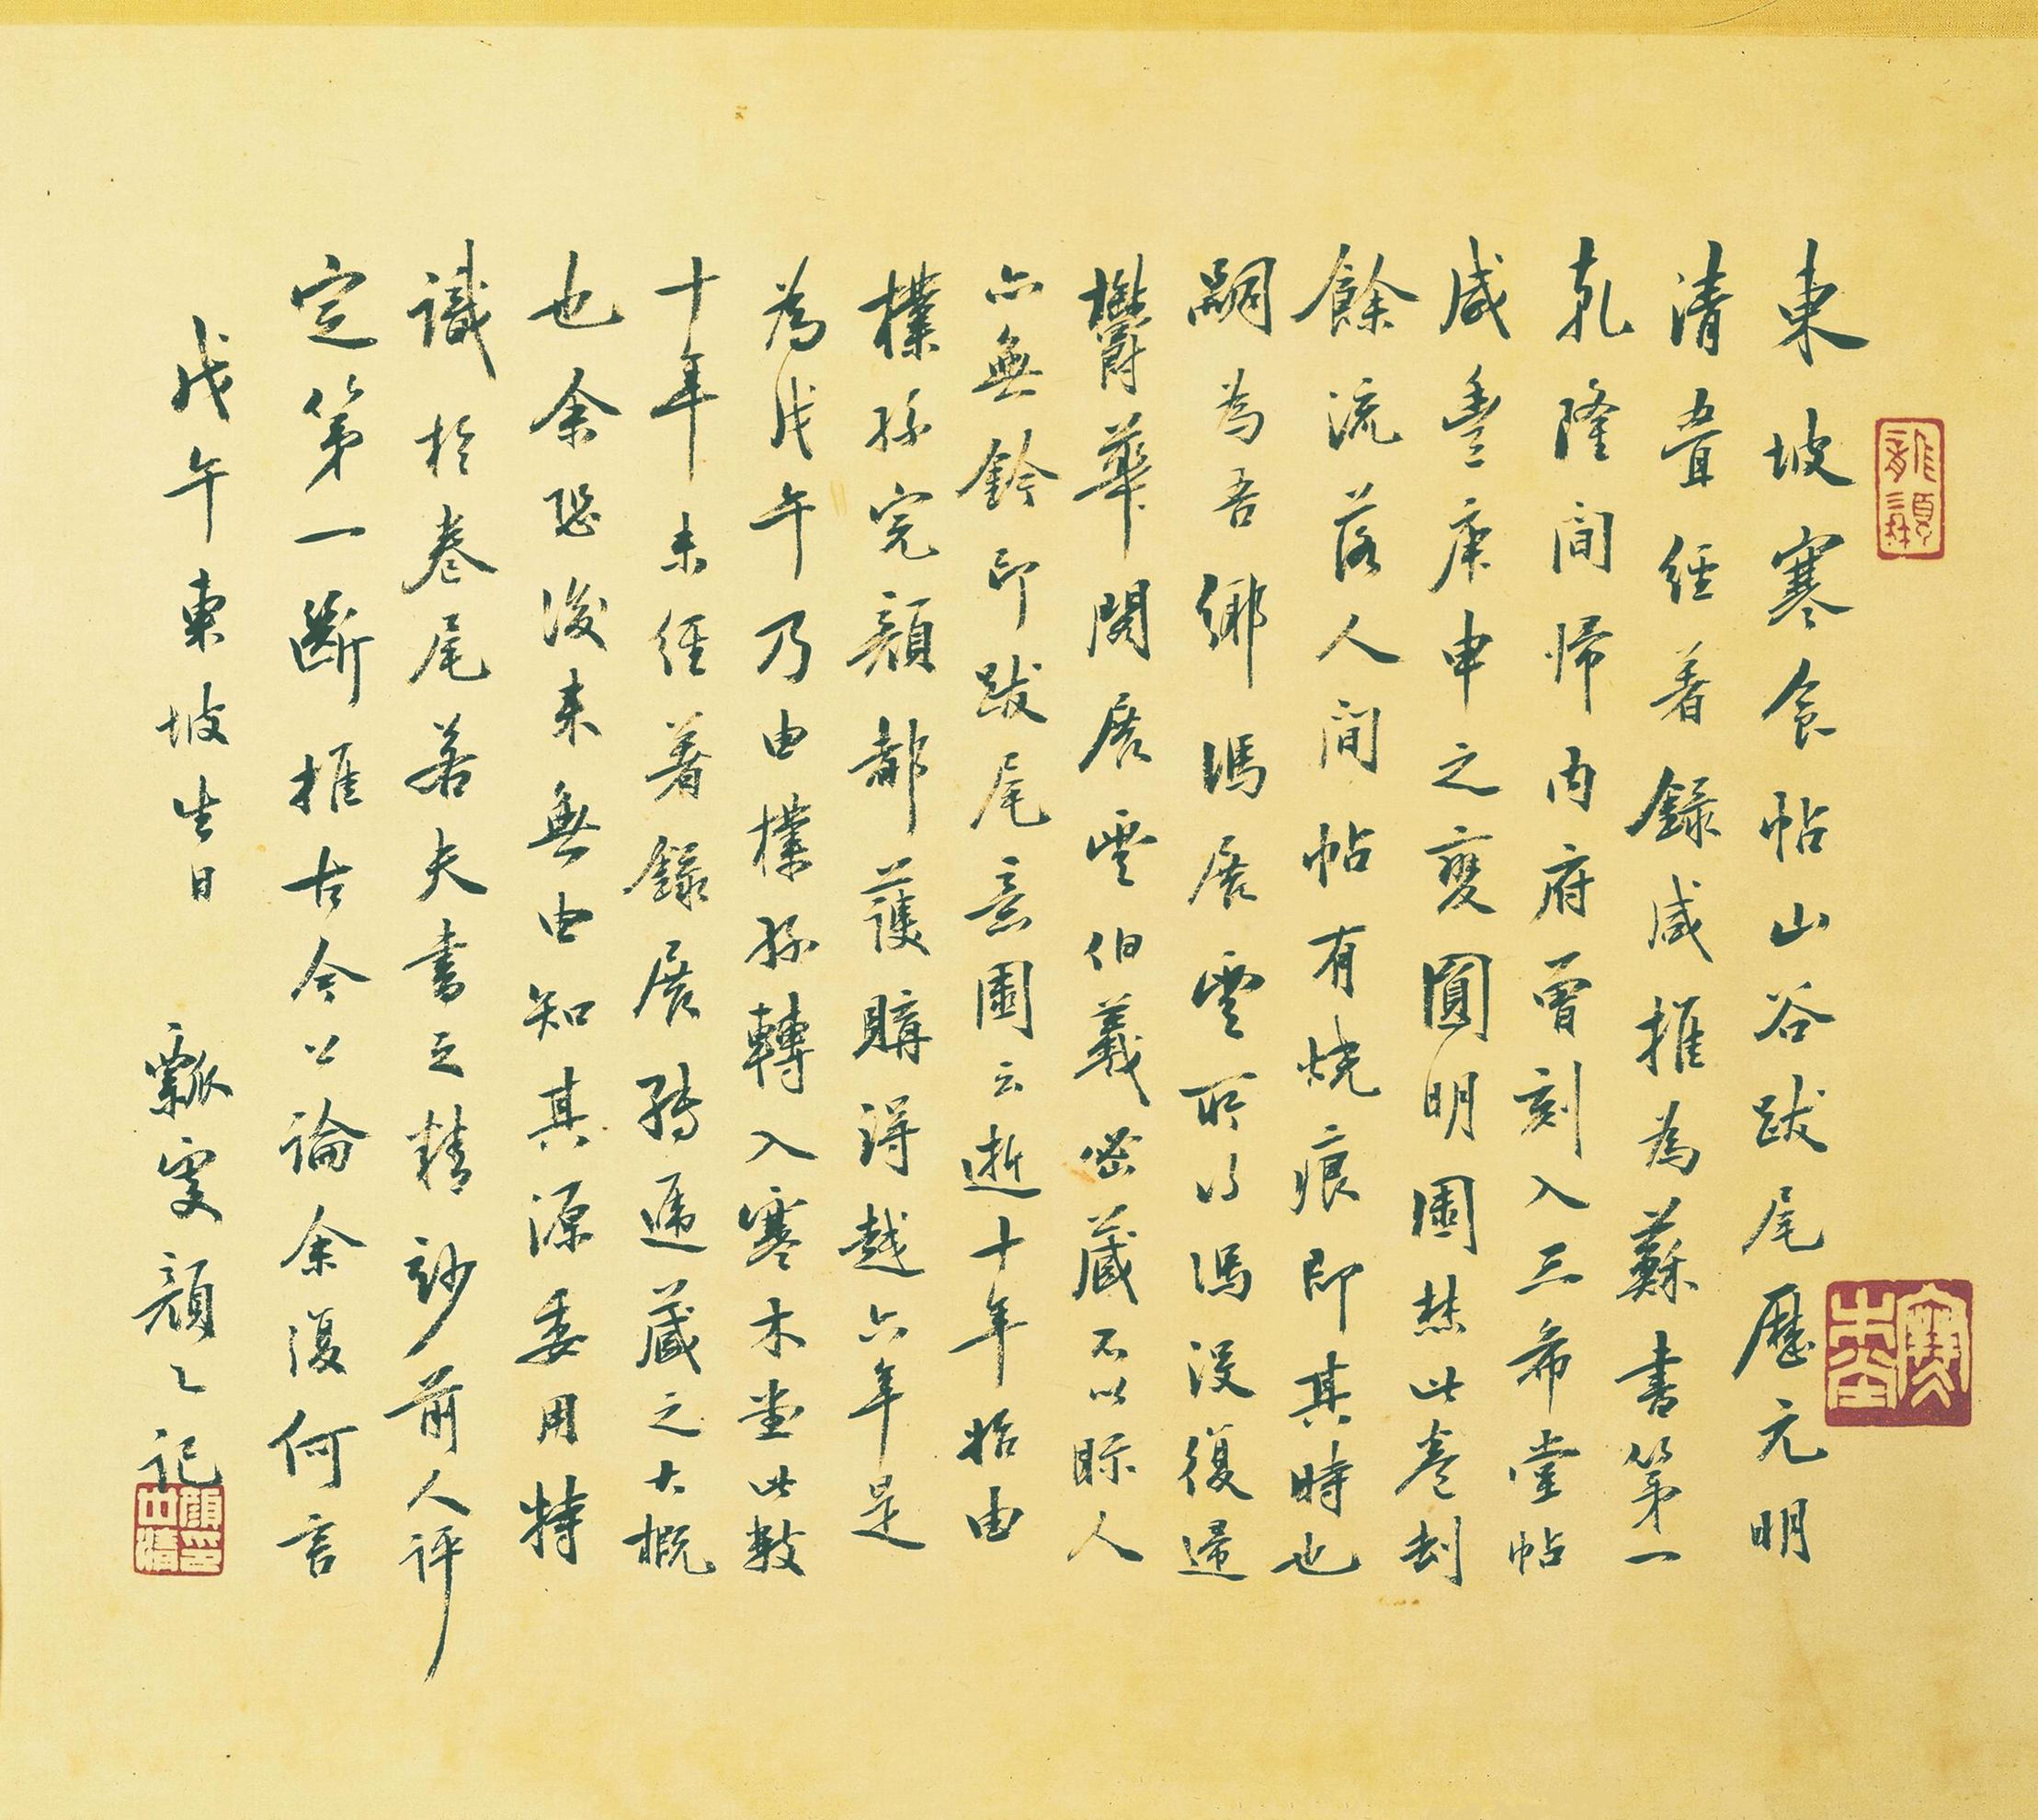 東坡寒食帖山谷跋尾歷元明
清疊經著錄咸推為蘇書第一
乾隆間歸內府曾刻入三希堂帖
咸豐庚申之變圓明園焚此卷刼
餘流落人間帖有燒痕即其時也
嗣為吾鄉馮展雲所得馮沒復歸
鬱華閣展雲伯羲密藏不以眎人
亦無鈐印跋尾意園云逝十年始由
樸孫完顏都護購得越六年是
為戊午乃由樸孫轉入寒木堂此數
十年未經著錄展轉遞藏之大概
也余恐後來無由知其源委用特
識於卷尾若夫書之精妙前人評
定第一斷推古今公論余復何言
戊午東坡生日 瓢叟顏〻記
寒木堂